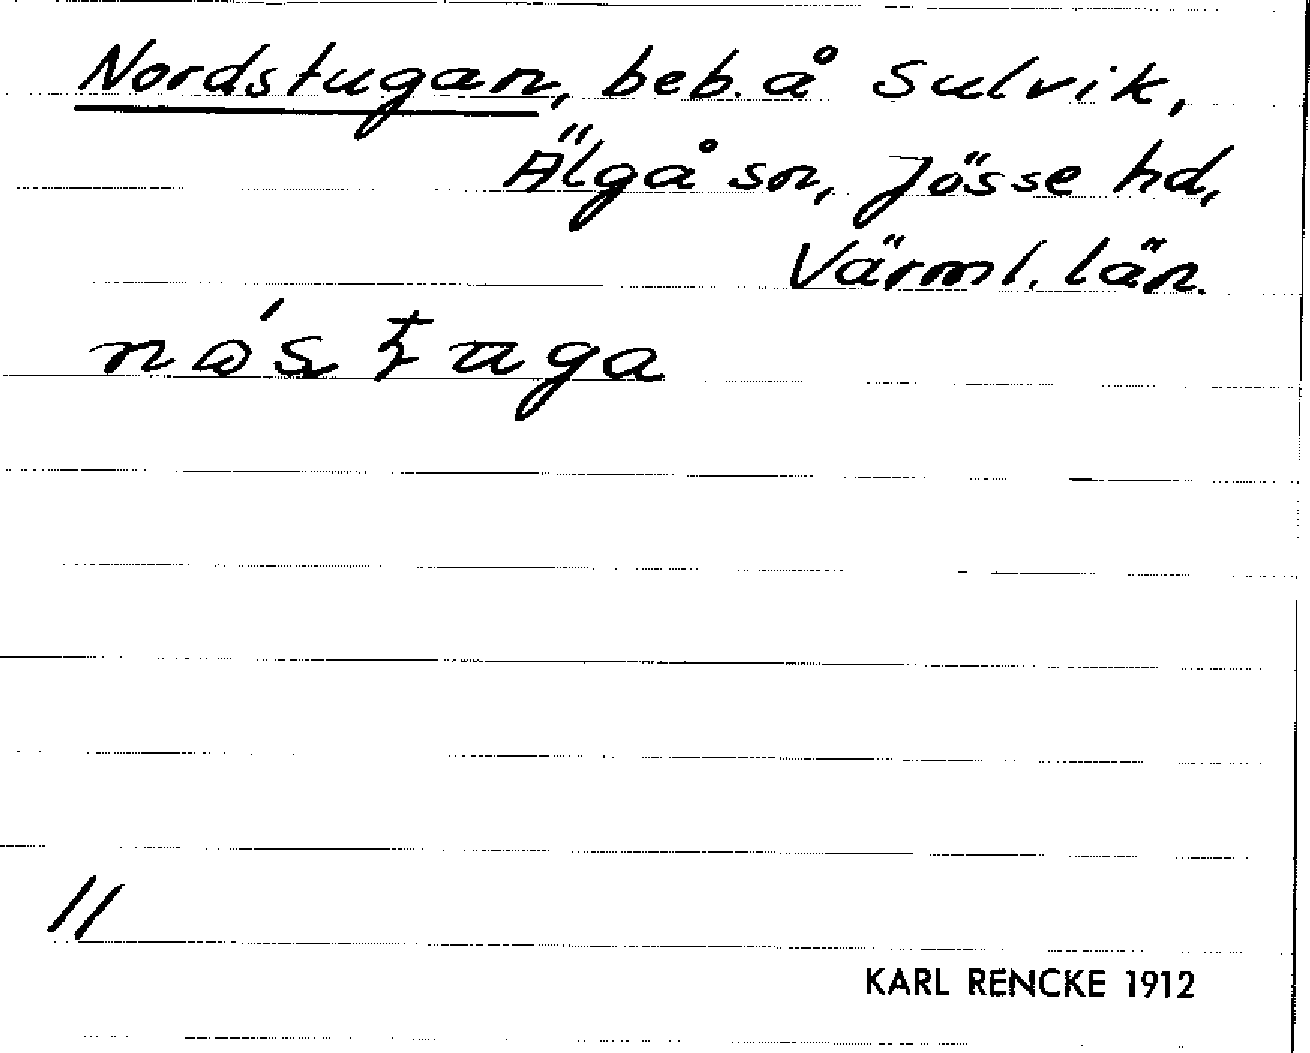 Nordstugan, beb. å Sulvik,
Älgå sn, Jösse hd,
Värml. län.
11
KARL RENCKE 1912